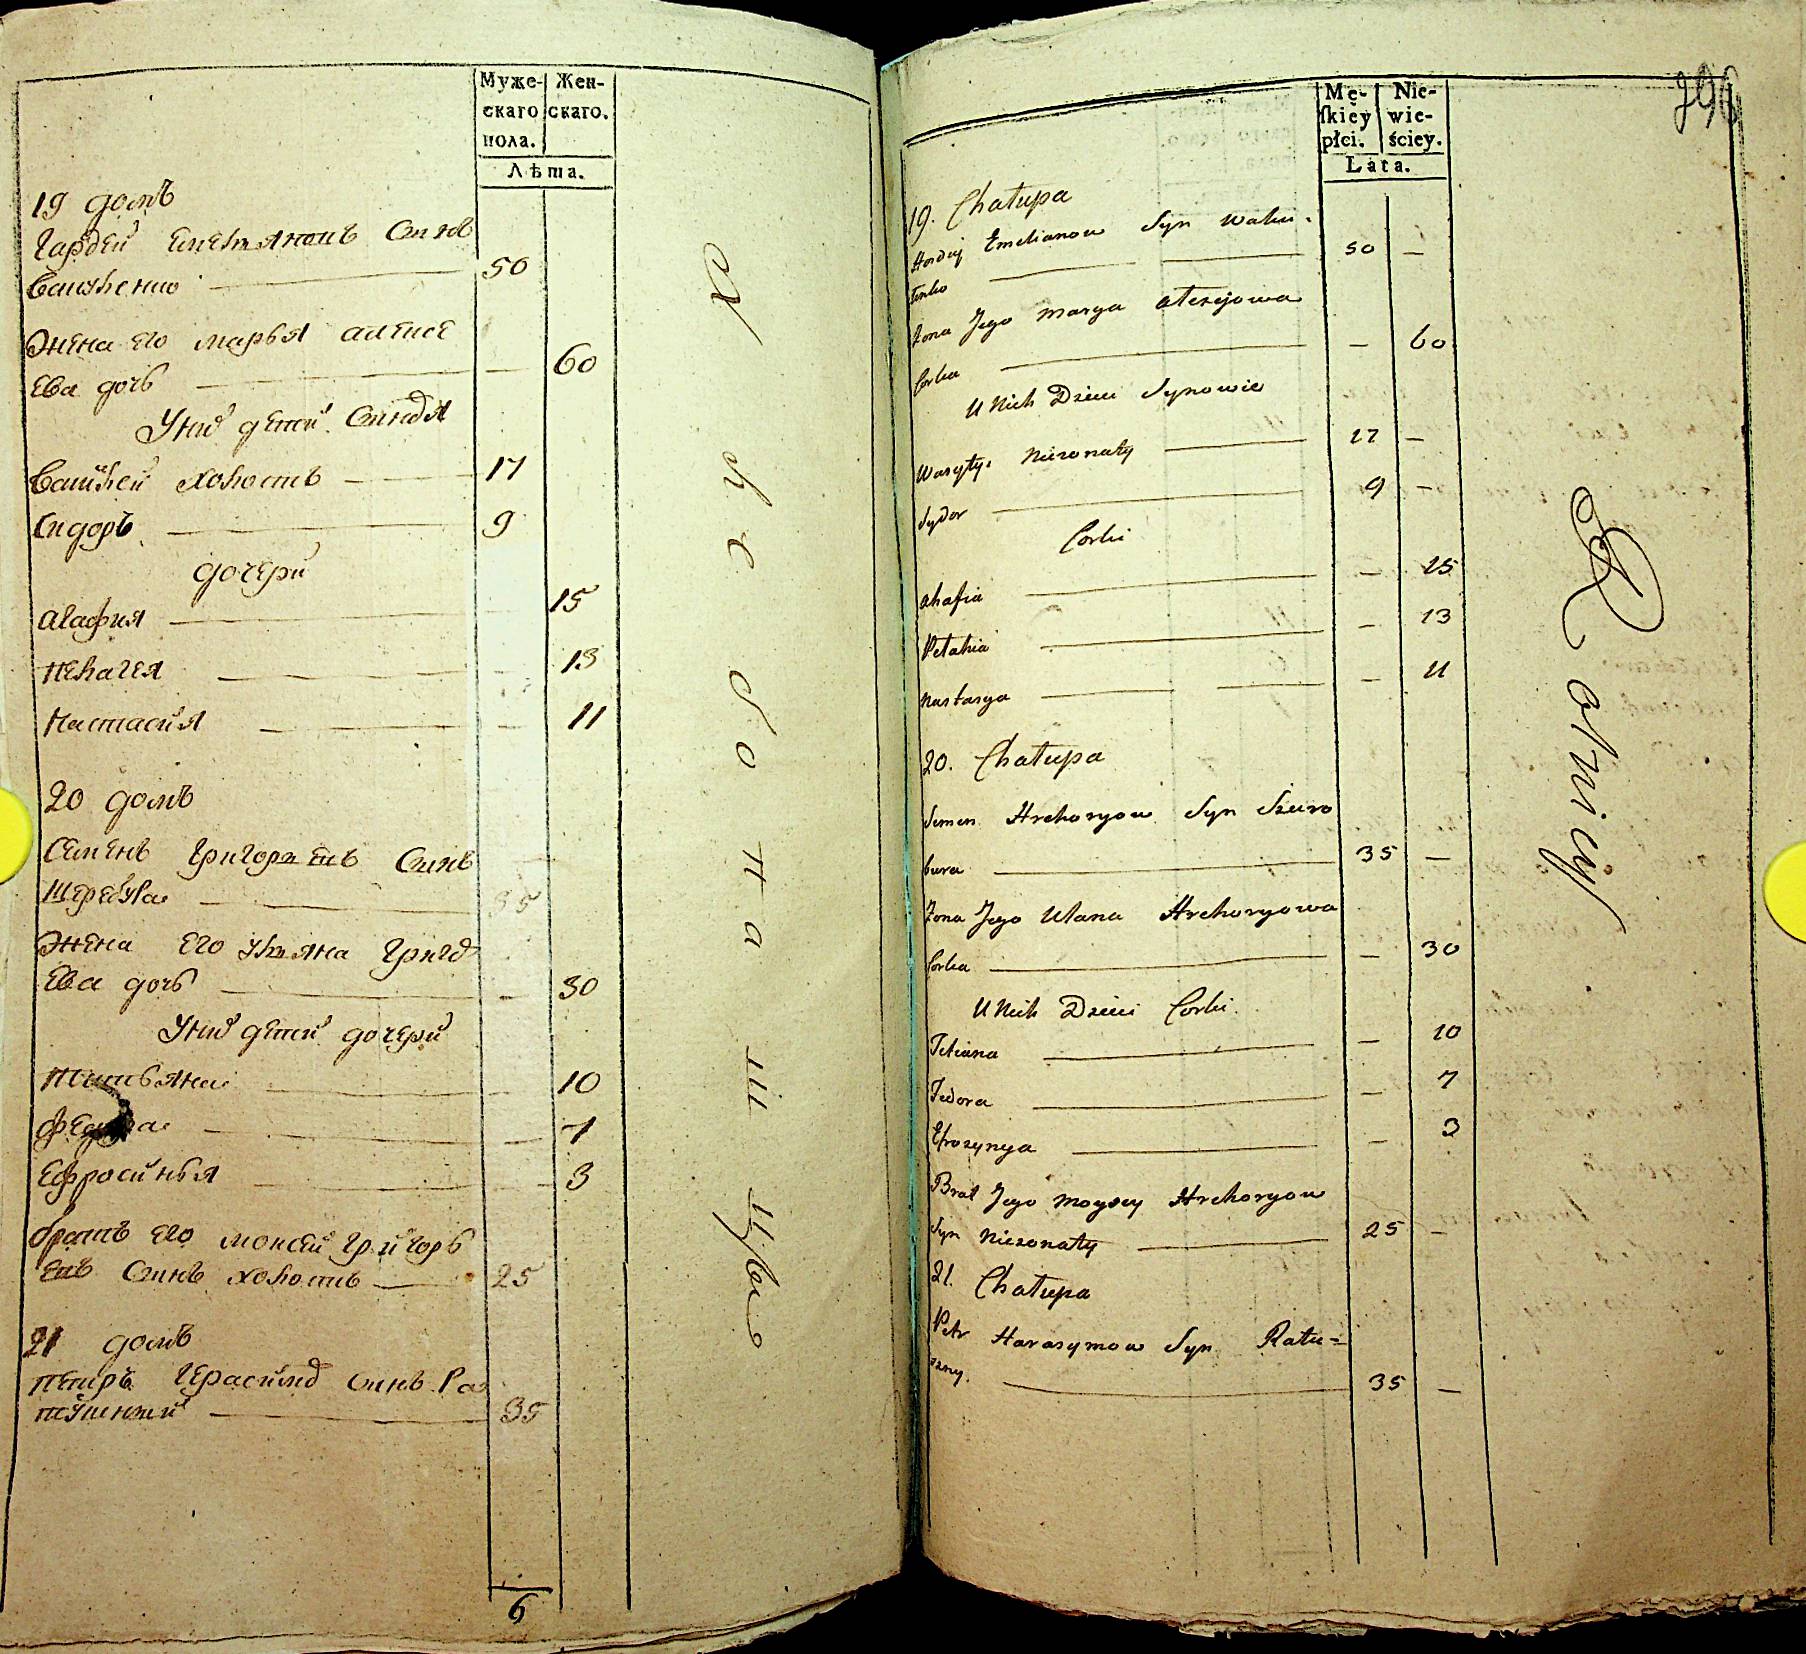 Муже-
скаго
пола.
Жен-
скаго.
Лѣта.
19 домъ
Гордей Емельяновъ Синъ
Василенко 50
Жена его марья алексе
ева дочь — 60
У них детей Синовя
Василей холостъ — 17
Сидоръ — 9
дочери
агафия — 15
пелагея — 13
Настасия — 11
20 домъ
Семенъ Григорьевъ Синъ
Щербура — 35
Жена его ульяна Григо
ева дочь — 30
У них детей дочери
татьяна — 10
федора — 7
Ефросинья — 3
братъ его моисей Григорь
евъ Синъ холостъ — 25
21 домъ
петръ Герасимо синъ Ра
тушный — 35
6
296
Mę-
ſkiéy
płci.
Nie-
wie-
ściey.
Lata.
19. Chałupa
Hordey Emelianow Syn Wasku-
tenko — 50 —
Żona Jego Marya Alexejowa
Corka — 60
U Nich Dzieci Synowie
Wasyly Nieżonaty — 17 —
Sydor — 9 —
Corki
Ahafia — 15
Pelahia — 13
Nastasya — 11
20. Chałupa
Semen Hrehoryow Syn Szuro
bura — 35 —
Żona Jego Ulana Hrehoryowa
Corka — 30
U Nich Dzieci Corki.
Tetiana — 10
Fedora — 7
Efrozynya — 3
Brat Jego Moysey Hrehoryow
Syn Nieżonaty — 25 —
21. Chałupa
Petr Harasymow Syn Ratu=
szny. — 35 —
Rolnicy